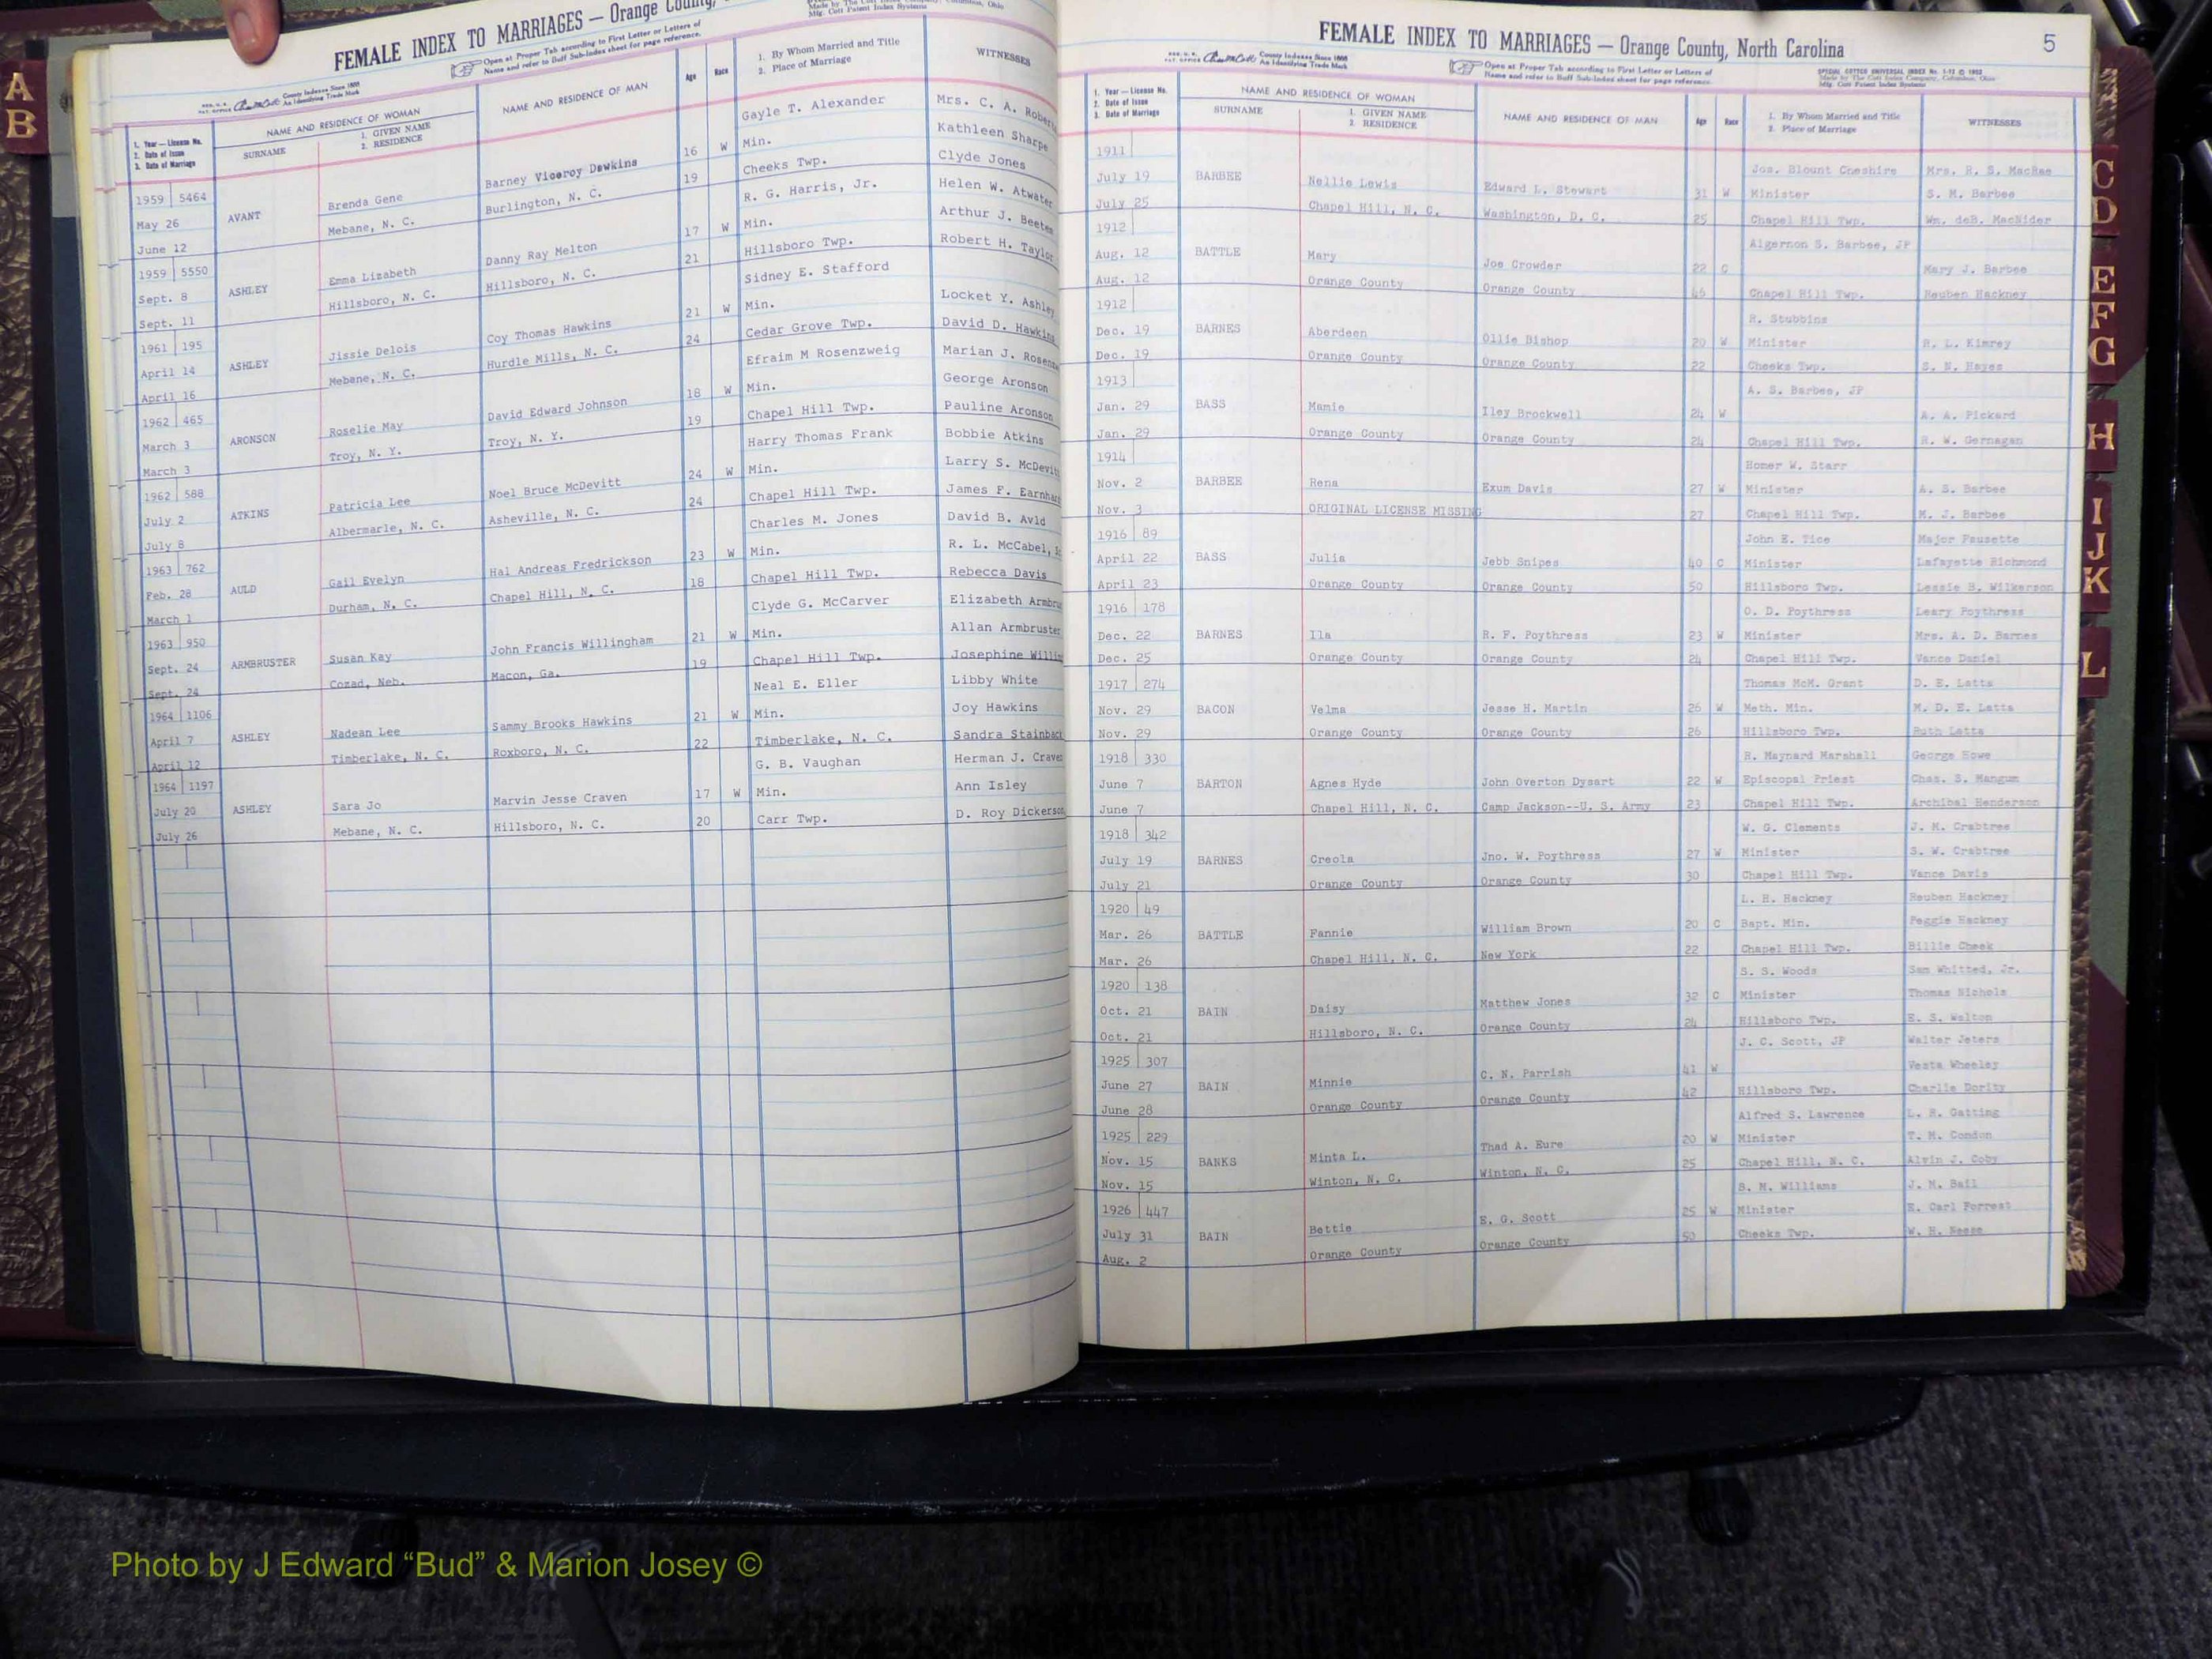 A
B
FEMALE INDEX TO MARRIAGES — Orange County,
Open at Proper Tab according to First Letter or Letters of
Name and refer to Buff Sub-Index sheet for page reference.
County Indexes Since 1888
An Identifying Trade Mark
1. Year — License No.
2. Date of Issue
3. Date of Marriage
NAME AND RESIDENCE OF WOMAN
SURNAME
1. GIVEN NAME
2. RESIDENCE
NAME AND RESIDENCE OF MAN
Age
Race
1. By Whom Married and Title
2. Place of Marriage
WITNESSES
Gayle T. Alexander Mrs. C. A. Roberts
1959 5464 Barney Viceroy Dawkins 16 W Min. Kathleen Sharpe
May 26 AVANT Brenda Gene Burlington, N. C. 19 Cheeks Twp. Clyde Jones
June 12 Mebane, N. C.
R. G. Harris, Jr. Helen W. Atwater
1959 5550 Danny Ray Melton 17 W Min. Arthur J. Beeten
Sept. 8 ASHLEY Emma Lizabeth Hillsboro, N. C. 21 Hillsboro Twp. Robert H. Taylor
Sept. 11 Hillsboro, N. C.
Sidney E. Stafford
1961 195 Coy Thomas Hawkins 21 W Min. Locket Y. Ashley
April 14 ASHLEY Jissie Delois Hurdle Mills, N. C. 24 Cedar Grove Twp. David D. Hawkins
April 16 Mebane, N. C.
Efraim M Rosenzweig Marian J. Rosenz
1962 465 David Edward Johnson 18 W Min. George Aronson
March 3 ARONSON Roselie May Troy, N. Y. 19 Chapel Hill Twp. Pauline Aronson
March 3 Troy, N. Y.
Harry Thomas Frank Bobbie Atkins
1962 588 Noel Bruce McDevitt 24 W Min. Larry S. McDevitt
July 2 ATKINS Patricia Lee Asheville, N. C. 24 Chapel Hill Twp. James F. Earnhar
July 8 Albermarle, N. C.
Charles M. Jones David B. Avld
1963 762 Hal Andreas Fredrickson 23 W Min. R. L. McCabel,
Feb. 28 AULD Gail Evelyn Chapel Hill, N. C. 18 Chapel Hill Twp. Rebecca Davis
March 1 Durham, N. C.
Clyde G. McCarver Elizabeth Armbru
1963 950 John Francis Willingham 21 W Min. Allan Armbruster
Sept. 24 ARMBRUSTER Susan Kay Macon, Ga. 19 Chapel Hill Twp. Josephine Willin
Sept. 24 Cozad, Neb.
Neal E. Eller Libby White
1964 1106 Sammy Brooks Hawkins 21 W Min. Joy Hawkins
April 7 ASHLEY Nadean Lee Roxboro, N. C. 22 Timberlake, N. C. Sandra Stainback
April 12 Timberlake, N. C.
G. B. Vaughan Herman J. Craven
1964 1197 Marvin Jesse Craven 17 W Min. Ann Isley
July 20 ASHLEY Sara Jo Hillsboro, N. C. 20 Carr Twp. D. Roy Dickerson
July 26 Mebane, N. C.
FEMALE INDEX TO MARRIAGES — Orange County, North Carolina
5
County Indexes Since 1888
An Identifying Trade Mark
Open at Proper Tab according to First Letter or Letters of
Name and refer to Buff Sub-Index sheet for page reference.
1. Year — License No.
2. Date of Issue
3. Date of Marriage
NAME AND RESIDENCE OF WOMAN
SURNAME
1. GIVEN NAME
2. RESIDENCE
NAME AND RESIDENCE OF MAN
Age
Race
1. By Whom Married and Title
2. Place of Marriage
WITNESSES
1911 Jos. Blount Cheshire Mrs. R. S. MacRae
July 19 BARBEE Nellie Lewis Edward L. Stewart 31 W Minister S. M. Barbee
July 25 Chapel Hill, N. C. Washington, D. C. 25 Chapel Hill Twp. Wm. deB. MacNider
1912 Algernon S. Barbee, JP
Aug. 12 BATTLE Mary Joe Crowder 22 C Mary J. Barbee
Aug. 12 Orange County Orange County Chapel Hill Twp. Reuben Hackney
1912 R. Stubbins
Dec. 19 BARNES Aberdeen Ollie Bishop 20 W Minister R. L. Kimrey
Dec. 19 Orange County Orange County 22 Cheeks Twp. S. N. Hayes
1913 A. S. Barbee, JP
Jan. 29 BASS Mamie Iley Brockwell 24 W A. A. Pickard
Jan. 29 Orange County Orange County 24 Chapel Hill Twp. R. W. Gernagan
1914 Homer W. Starr
Nov. 2 BARBEE Rena Exum Davis 27 W Minister A. S. Barbee
Nov. 3 ORIGINAL LICENSE MISSING 27 Chapel Hill Twp. M. J. Barbee
1916 89 John E. Tice Major Fausette
April 22 BASS Julia Jebb Snipes 40 C Minister Lafayette Richmond
April 23 Orange County Orange County 50 Hillsboro Twp. Lessie B. Wilkerson
1916 178 O. D. Poythress Leary Poythress
Dec. 22 BARNES Ila R. F. Poythress 23 W Minister Mrs. A. D. Barnes
Dec. 25 Orange County Orange County 24 Chapel Hill Twp. Vance Daniel
1917 274 Thomas McM. Grant D. E. Latta
Nov. 29 BACON Velma Jesse H. Martin 26 W Meth. Min. M. D. E. Latta
Nov. 29 Orange County Orange County 26 Hillsboro Twp. Ruth Latta
1918 330 H. Maynard Marshall George Howe
June 7 BARTON Agnes Hyde John Overton Dysart 22 W Episcopal Priest Chas. S. Mangum
June 7 Chapel Hill, N. C. Camp Jackson--U. S. Army 23 Chapel Hill Twp. Archibal Henderson
1918 342 W. G. Clements J. M. Crabtree
July 19 BARNES Creola Jno. W. Poythress 27 W Minister S. W. Crabtree
July 21 Orange County Orange County 30 Chapel Hill Twp. Vance Davis
1920 49 L. H. Hackney Reuben Hackney
Mar. 26 BATTLE Fannie William Brown 20 C Bapt. Min. Peggie Hackney
Mar. 26 Chapel Hill, N. C. New York 22 Chapel Hill Twp. Billie Cheek
1920 138 S. S. Woods Sam Whitted, Jr.
Oct. 21 BAIN Daisy Matthew Jones 32 C Minister Thomas Nichols
Oct. 21 Hillsboro, N. C. Orange County 24 Hillsboro Twp. E. S. Walton
1925 307 J. C. Scott, JP Walter Jeters
June 27 BAIN Minnie C. N. Parrish 41 W Vesta Wheeley
June 28 Orange County Orange County 42 Hillsboro Twp. Charlie Dority
1925 229 Alfred S. Lawrence L. R. Gatting
Nov. 15 BANKS Minta L. Thad A. Eure 20 W Minister T. M. Condon
Nov. 15 Winton, N. C. Winton, N. C. 25 Chapel Hill, N. C. Alvin J. Coby
1926 447 S. M. Williams J. M. Bail
July 31 BAIN Bettie E. G. Scott 25 W Minister E. Carl Forrest
Aug. 2 Orange County Orange County 50 Cheeks Twp. W. H. Neese
C
D
E
F
G
H
I
J
K
L
Photo by J Edward “Bud” & Marion Josey ©